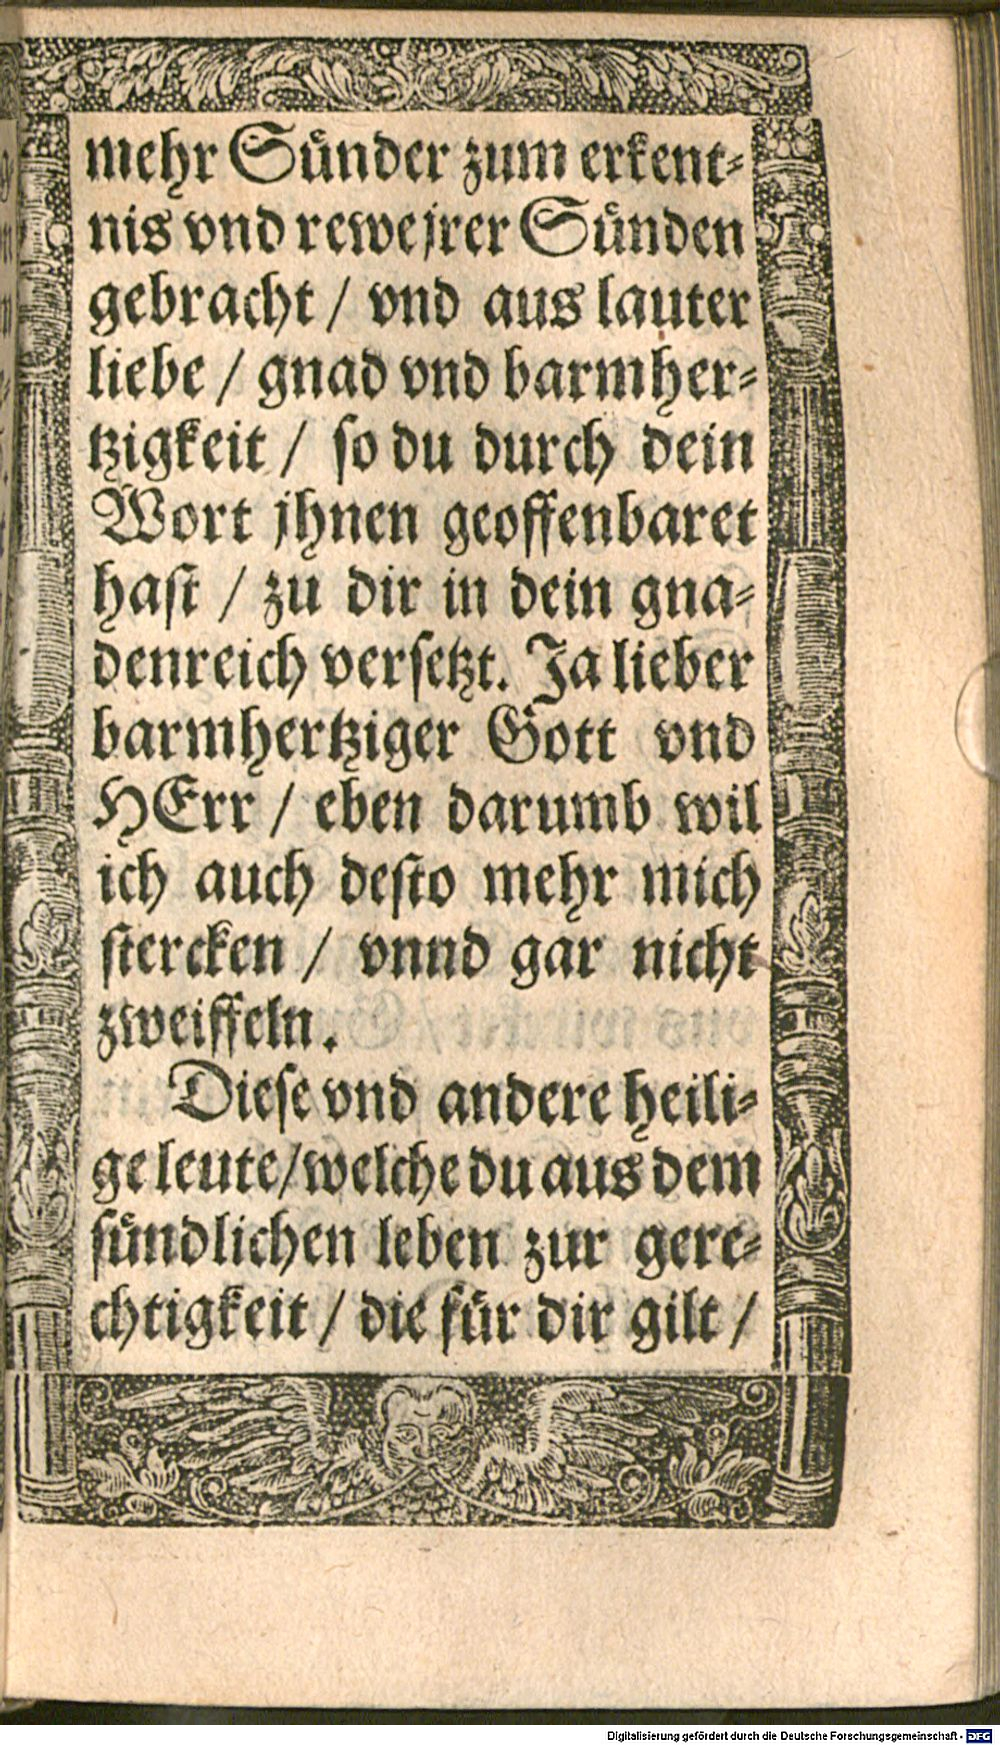 mehr Sünder zum erkent-
nis vnd rewe jrer Sünden
gebracht / vnd aus lauter
liebe / gnad vnd barmher-
tzigkeit / so du durch dein
Wort jhnen geoffenbaret
hast / zu dir in dein gna-
denreich versetzt. Ja lieber
barmhertziger Gott vnd
HErr / eben darumb wil
ich auch desto mehr mich
stercken / vnnd gar nicht
zweiffeln.
Diese vnd andere heili-
ge leute / welche du aus dem
sündlichen leben zur gere-
chtigkeit / die für dir gilt /
Digitalisierung gefördert durch die Deutsche Forschungsgemeinschaft - DFG